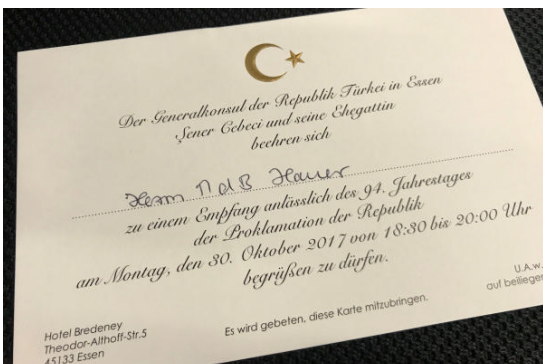 Der Generalkonsul der Republik Türkei in Essen
Şener Cebeci und seine Ehegattin
beehren sich
Herrn MdB Hauer
zu einem Empfang anlässlich des 94. Jahrestages
der Proklamation der Republik
am Montag, den 30. Oktober 2017 von 18:30 bis 20:00 Uhr
begrüßen zu dürfen.
Hotel Bredeney
Theodor-Althoff-Str.5
45133 Essen
Es wird gebeten, diese Karte mitzubringen.
U.A.w.
auf beiliege